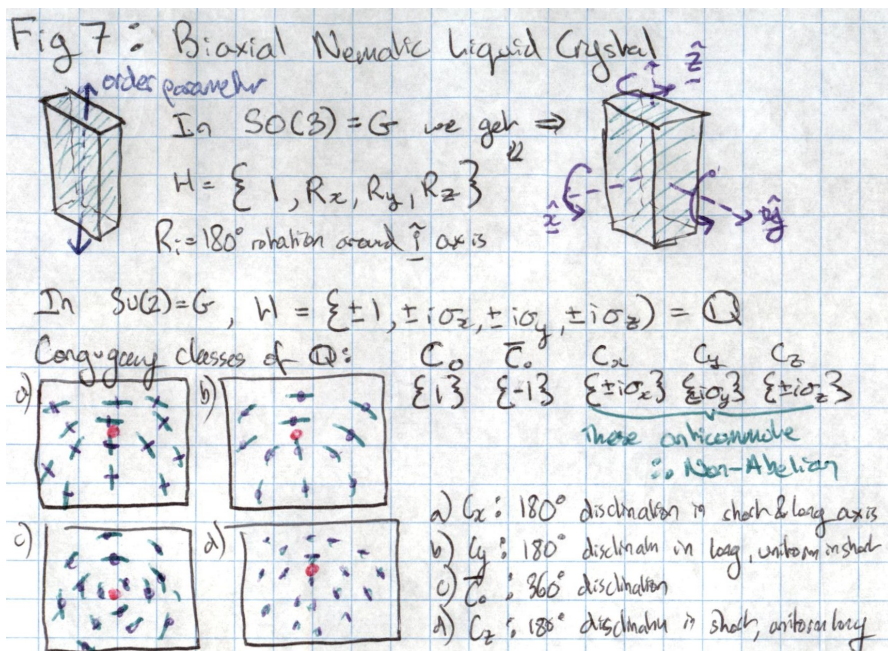 Fig 7: Biaxial Nematic Liquid Crystal
order parameter
In SO(3) = G we get ⇒
H = { 1, Rx, Ry, Rz }
Ri = 180° rotation around î axis
ẑ
x̂
ŷ
In SU(2) = G, H = {±1, ±iσz, ±iσy, ±iσz) = Q
Congugacy classes of Q: C₀ C̄₀ Cx Cy Cz
{1} {-1} {±iσx} {±iσy} {±iσz}
These anticommute
∴ Non-Abelian
a)
b)
c)
d)
a) Cx: 180° disclination in short & long axis
b) Cy: 180° disclinatn in long, uniform in short
c) C̄₀: 360° disclination
d) Cz: 180° disclinatn in short, uniform long